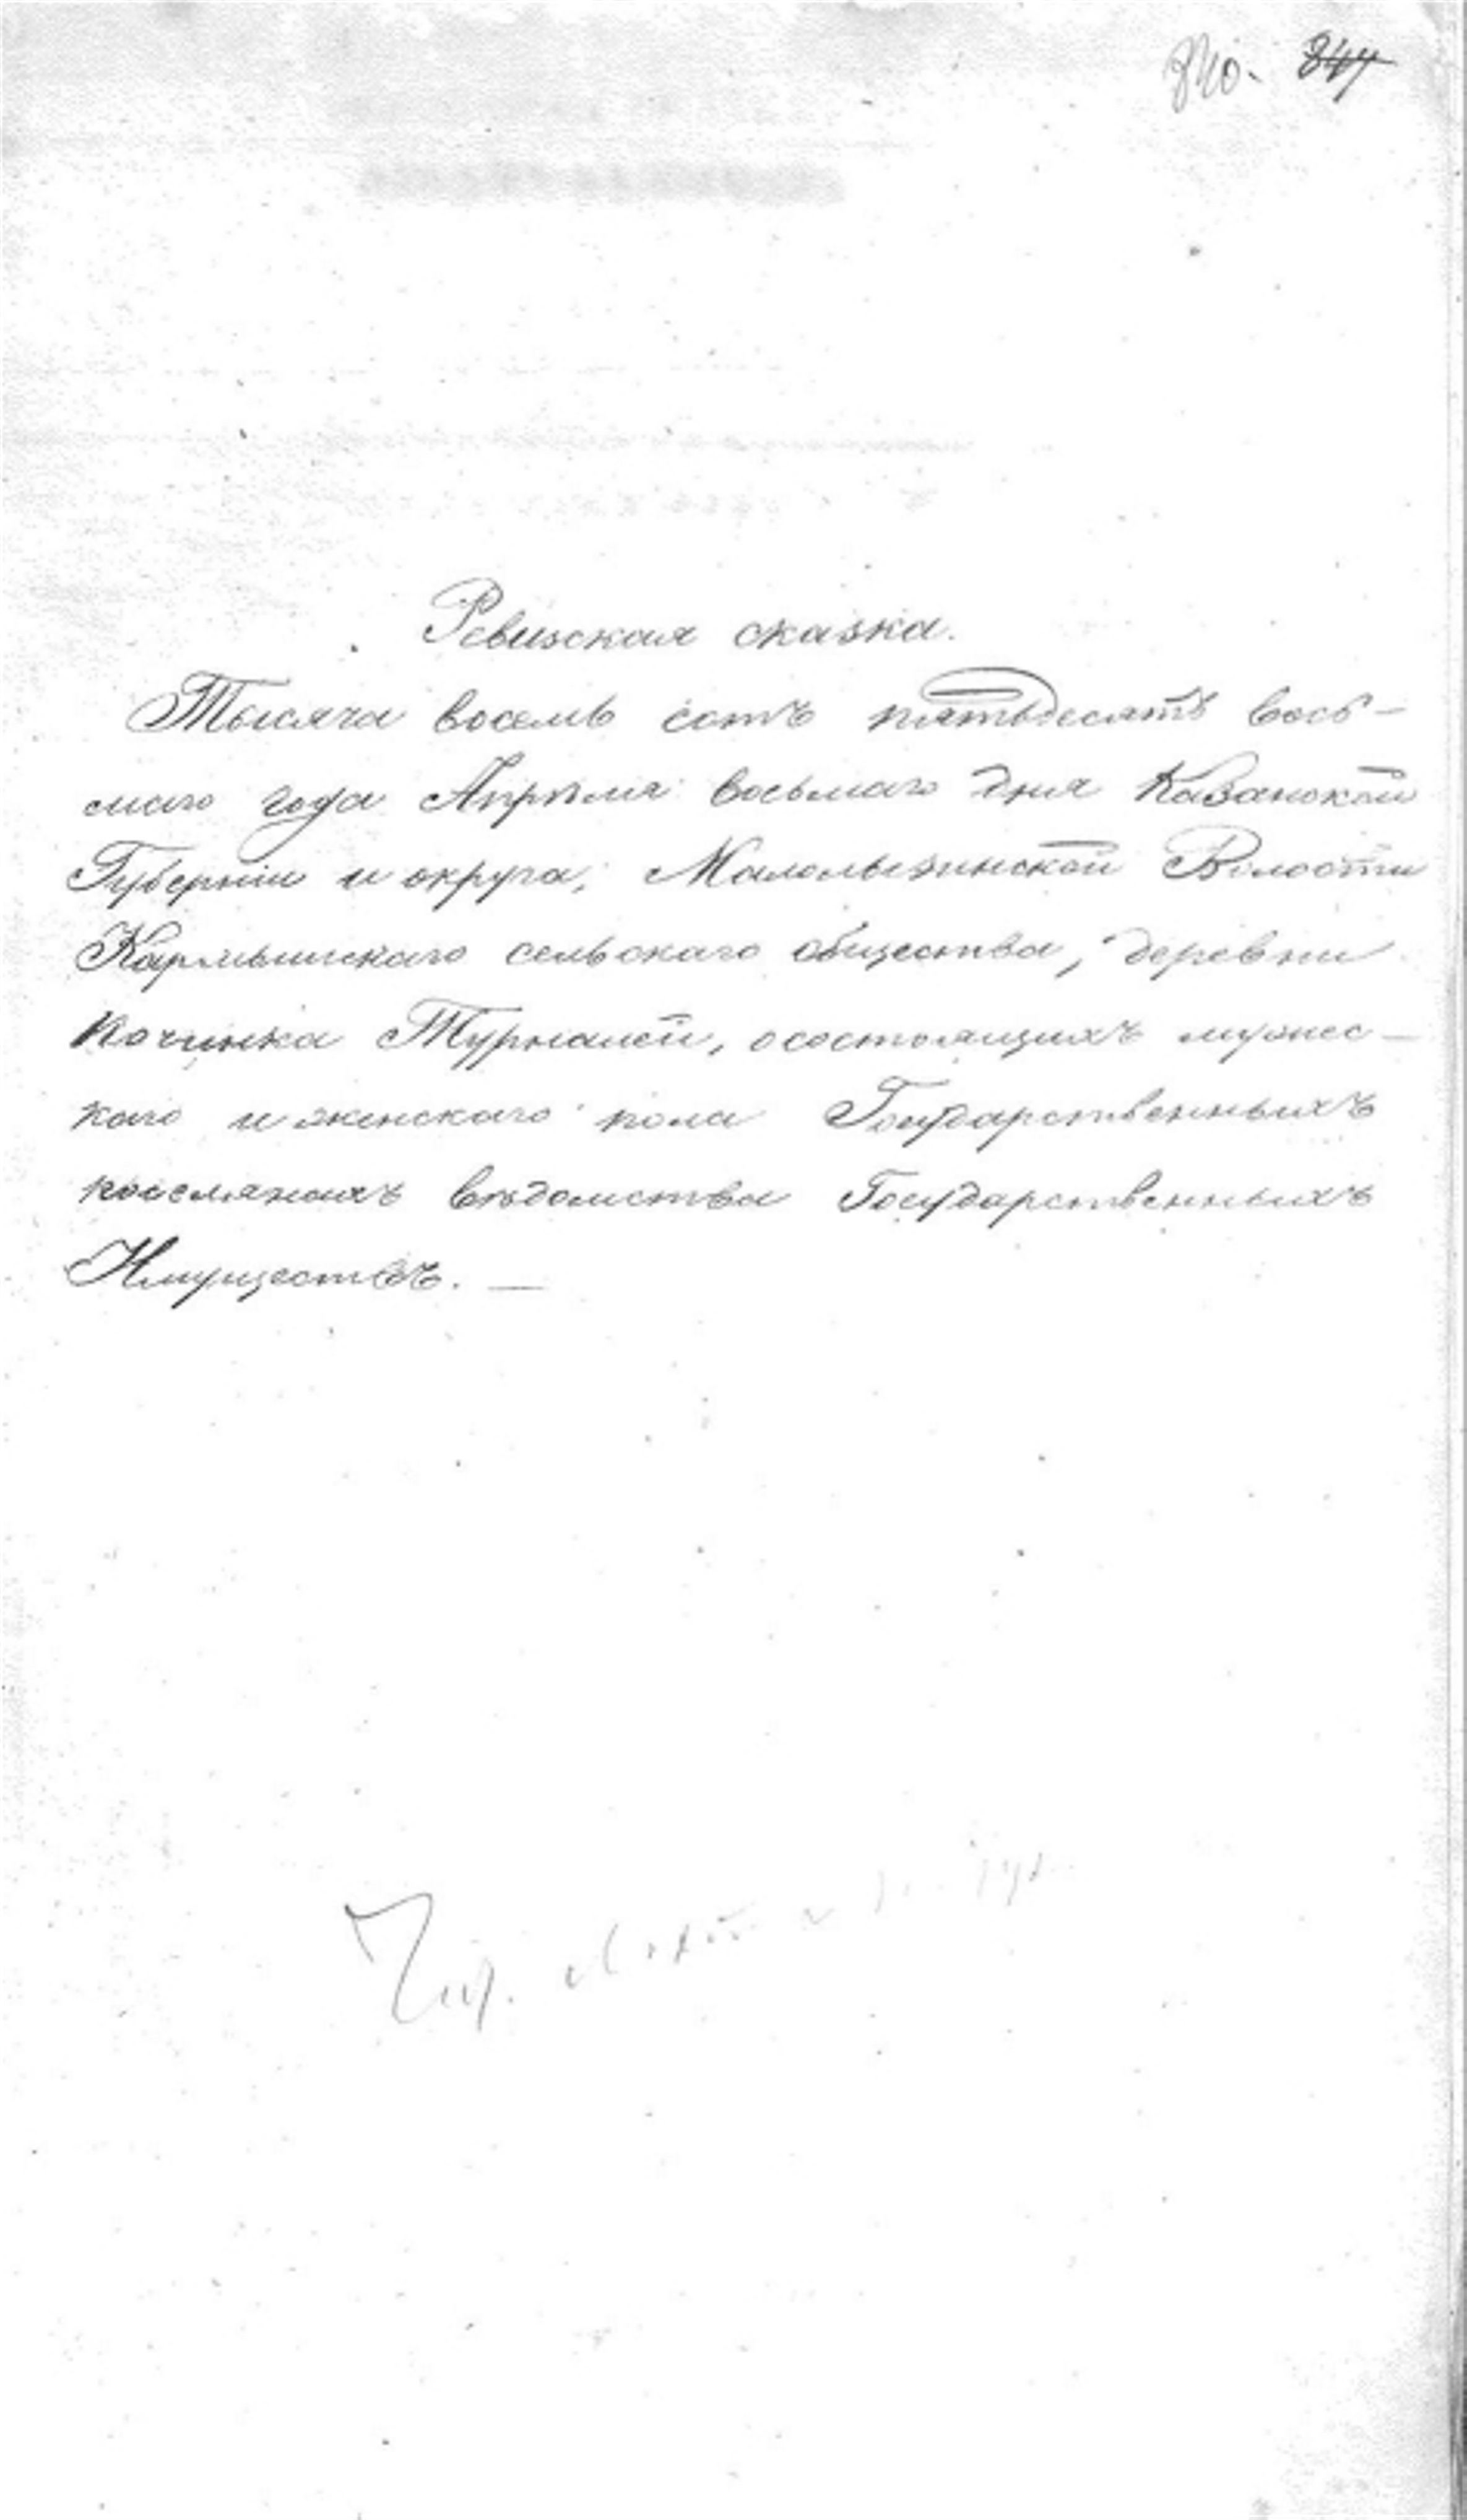 840. 847
Ревизская сказка.
Тысяча восемь сотъ пятьдесятъ вось-
маго года Апрѣля восьмаго дня Казанской
Губерніи и округа, Малолызинской Волости
сельскаго общества, деревни
Починка Турналей, осостоящихъ мужес-
каго и женскаго пола Государственныхъ
поселянахъ вѣдомства Государственныхъ
Имуществъ. —